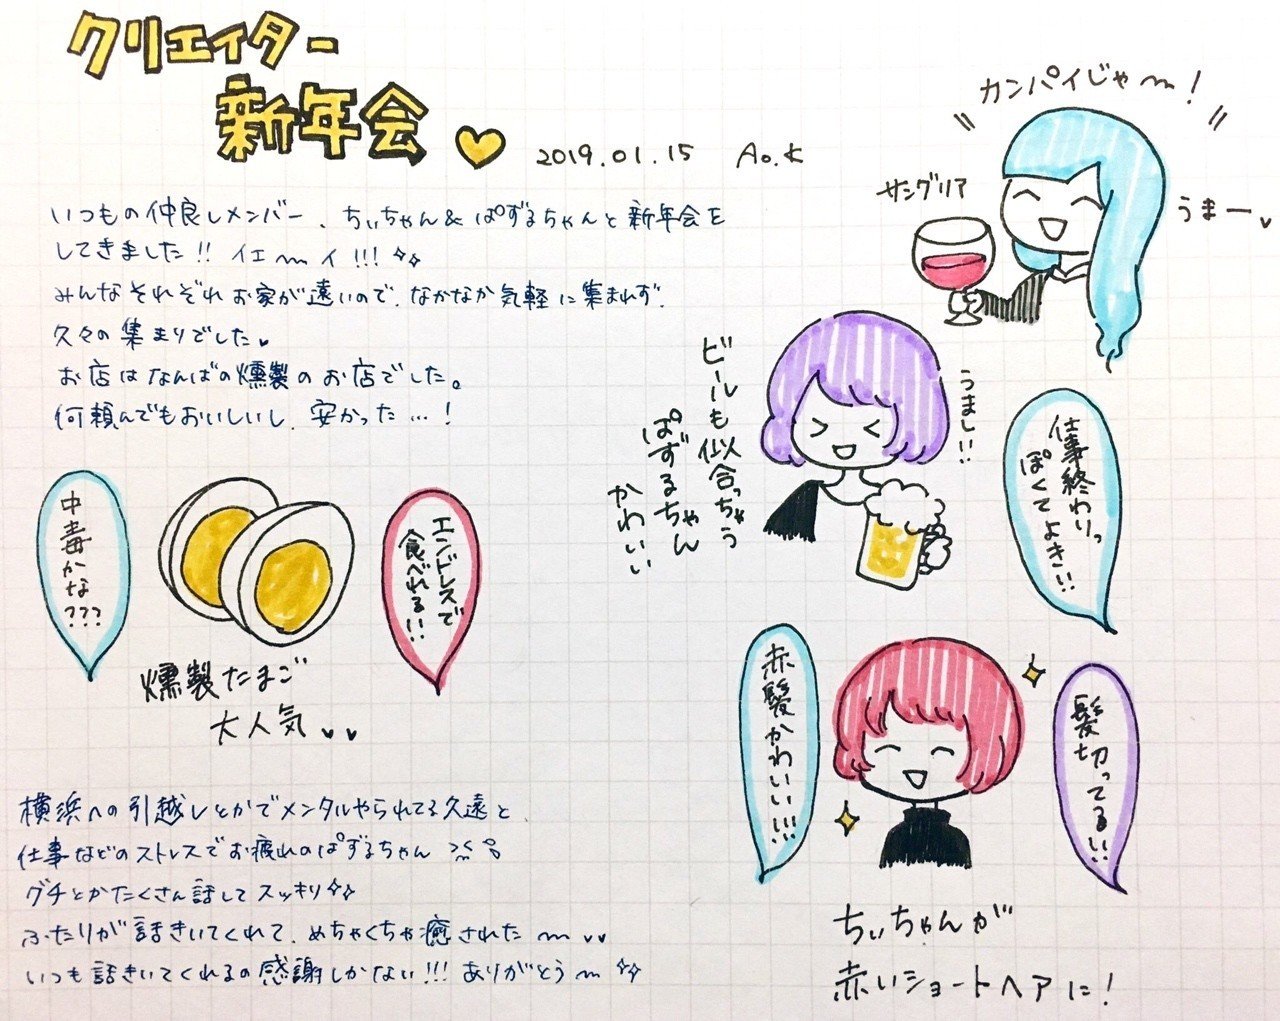 クリエイター
新年会
2019.01.15 Ao.K
いつもの仲良しメンバー、ちぃちゃん&ぱずるちゃんと新年会を
してきました!! イエ〜イ!!!
みんなそれぞれお家が遠いので、なかなか気軽に集まれず、
久々の集まりでした♥
お店はなんばの燻製のお店でした。
何頼んでもおいしいし、安かった…!
カンパイじゃ〜!
サングリア
うまー♥
ビールも似合っちゃう
ぱずるちゃん
かわいい
うまし!!
仕事終わりっ
ぽくてよき!!
中毒かな???
エンドレスで
食べれる!!
燻製たまご
大人気♥♥
赤髪かわいい!!!
髪切ってるぅ!!
ちぃちゃんが
赤いショートヘアに!
横浜への引越しとかでメンタルやられてる久遠と、
仕事などのストレスでお疲れのぱずるちゃん
グチとかたくさん話してスッキリ
ふたりが話きいてくれて、めちゃくちゃ癒された〜♥♥
いつも話きいてくれるの感謝しかない!!! ありがとう〜